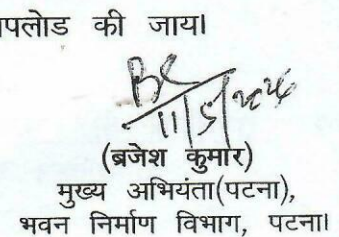 पलोड की जाय।
11/5/2026
(ब्रजेश कुमार)
मुख्य अभियंता(पटना),
भवन निर्माण विभाग, पटना।